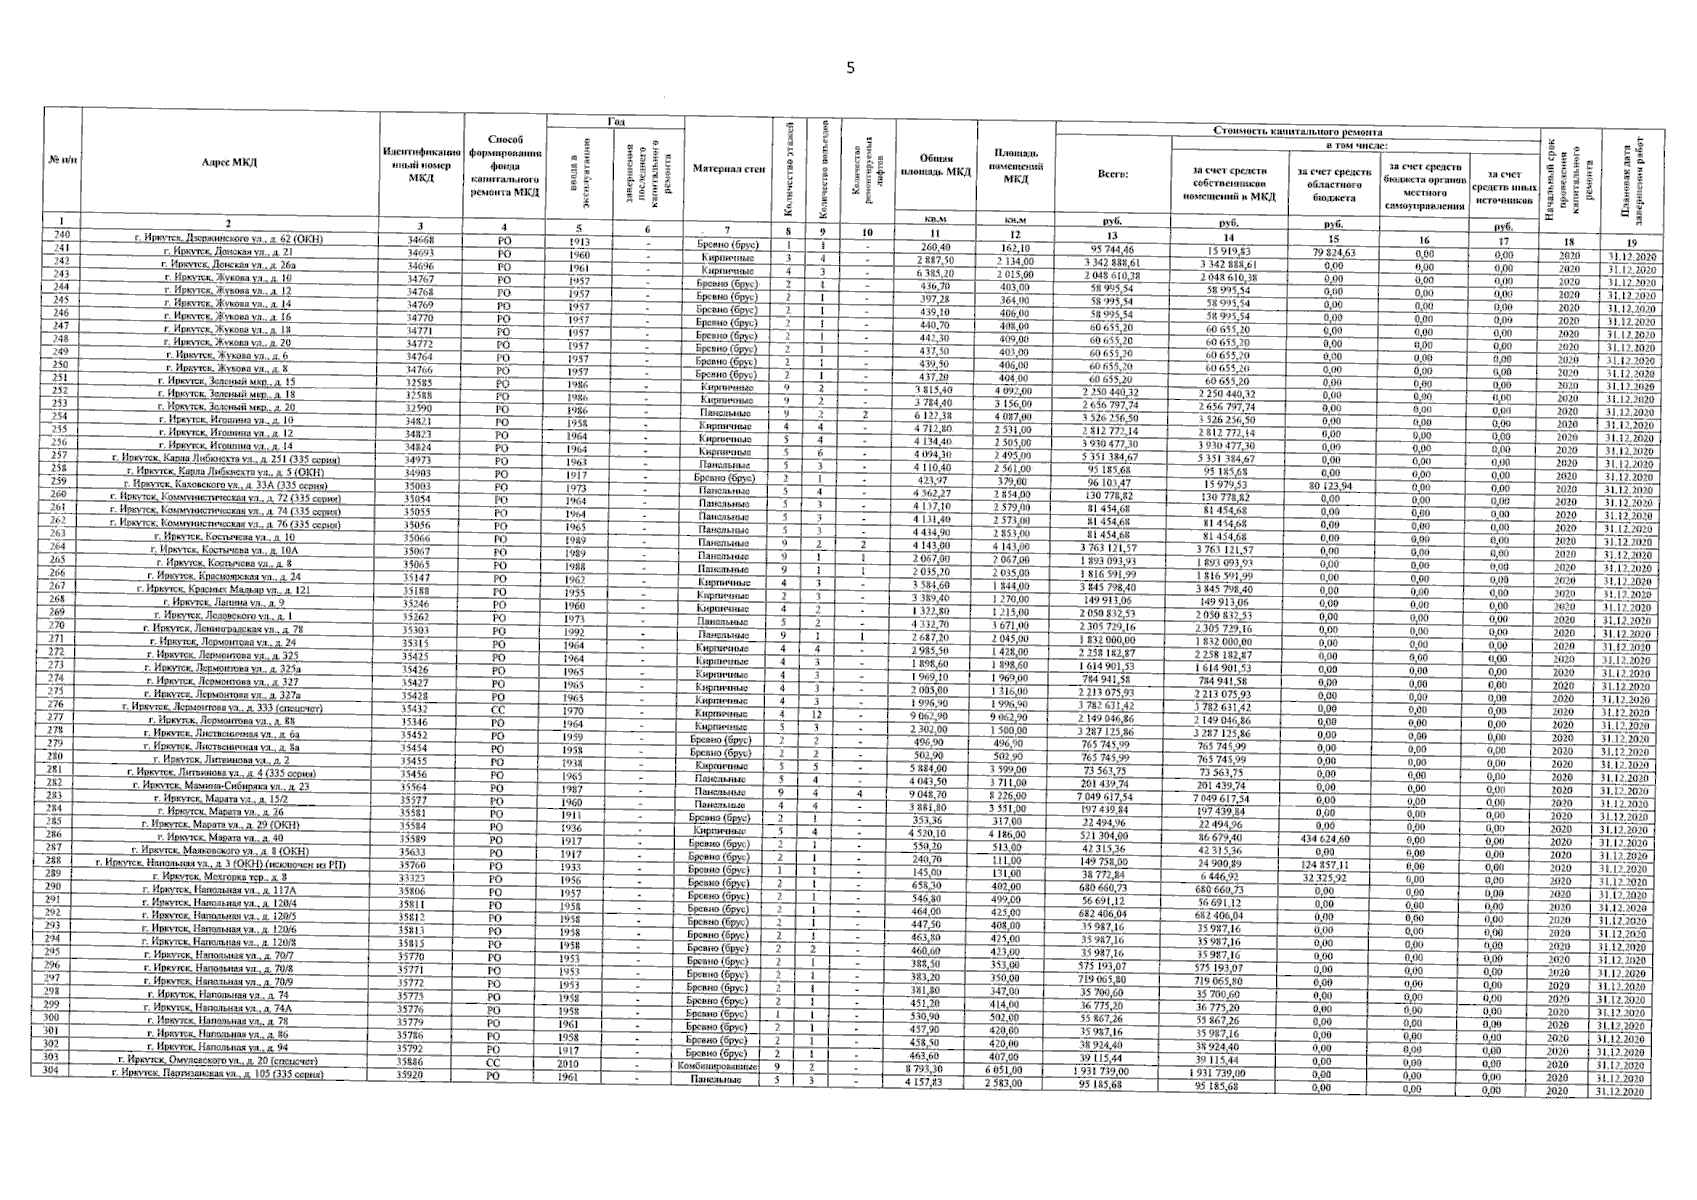 5
№ п/п
Адрес МКД
Идентификационный номер МКД
Способ формирования фонда капитального ремонта МКД
Год
ввода в эксплуатацию
завершения последнего капитального ремонта
Материал стен
Количество этажей
Количество подъездов
Количество ремонтируемых лифтов
Общая площадь МКД
Площадь помещений МКД
Стоимость капитального ремонта
Всего:
в том числе:
за счет средств собственников помещений в МКД
за счет средств областного бюджета
за счет средств бюджета органов местного самоуправления
за счет средств иных источников
Начальный срок проведения капитального ремонта
Плановая дата завершения работ
кв.м кв.м руб. руб. руб. руб.
1 2 3 4 5 6 7 8 9 10 11 12 13 14 15 16 17 18 19
240 г. Иркутск, Дзержинского ул., д. 62 (ОКН) 34668 РО 1913 - Бревно (брус) 1 1 - 260,40 162,10 95 744,46 15 919,83 79 824,63 0,00 0,00 2020 31.12.2020
241 г. Иркутск, Донская ул., д. 21 34693 РО 1960 - Кирпичные 3 4 - 2 887,50 2 134,00 3 342 888,61 3 342 888,61 0,00 0,00 0,00 2020 31.12.2020
242 г. Иркутск, Донская ул., д. 26а 34696 РО 1961 - Кирпичные 4 3 - 6 385,20 2 015,00 2 048 610,38 2 048 610,38 0,00 0,00 0,00 2020 31.12.2020
243 г. Иркутск, Жукова ул., д. 10 34767 РО 1957 - Бревно (брус) 2 1 - 436,70 403,00 58 995,54 58 995,54 0,00 0,00 0,00 2020 31.12.2020
244 г. Иркутск, Жукова ул., д. 12 34768 РО 1957 - Бревно (брус) 2 1 - 397,28 364,00 58 995,54 58 995,54 0,00 0,00 0,00 2020 31.12.2020
245 г. Иркутск, Жукова ул., д. 14 34769 РО 1957 - Бревно (брус) 2 1 - 439,10 406,00 58 995,54 58 995,54 0,00 0,00 0,00 2020 31.12.2020
246 г. Иркутск, Жукова ул., д. 16 34770 РО 1957 - Бревно (брус) 2 1 - 440,70 408,00 60 655,20 60 655,20 0,00 0,00 0,00 2020 31.12.2020
247 г. Иркутск, Жукова ул., д. 18 34771 РО 1957 - Бревно (брус) 2 1 - 442,30 409,00 60 655,20 60 655,20 0,00 0,00 0,00 2020 31.12.2020
248 г. Иркутск, Жукова ул., д. 20 34772 РО 1957 - Бревно (брус) 2 1 - 437,50 403,00 60 655,20 60 655,20 0,00 0,00 0,00 2020 31.12.2020
249 г. Иркутск, Жукова ул., д. 6 34764 РО 1957 - Бревно (брус) 2 1 - 439,50 406,00 60 655,20 60 655,20 0,00 0,00 0,00 2020 31.12.2020
250 г. Иркутск, Жукова ул., д. 8 34766 РО 1957 - Бревно (брус) 2 1 - 437,20 404,00 60 655,20 60 655,20 0,00 0,00 0,00 2020 31.12.2020
251 г. Иркутск, Зеленый мкр., д. 15 32585 РО 1986 - Кирпичные 9 2 - 3 815,40 4 092,00 2 250 440,32 2 250 440,32 0,00 0,00 0,00 2020 31.12.2020
252 г. Иркутск, Зеленый мкр., д. 18 32588 РО 1986 - Кирпичные 9 2 - 3 784,40 3 156,00 2 656 797,74 2 656 797,74 0,00 0,00 0,00 2020 31.12.2020
253 г. Иркутск, Зеленый мкр., д. 20 32590 РО 1986 - Панельные 9 2 2 6 127,38 4 087,00 3 526 256,50 3 526 256,50 0,00 0,00 0,00 2020 31.12.2020
254 г. Иркутск, Игошина ул., д. 10 34821 РО 1958 - Кирпичные 4 4 - 4 712,80 2 531,00 2 812 772,14 2 812 772,14 0,00 0,00 0,00 2020 31.12.2020
255 г. Иркутск, Игошина ул., д. 12 34823 РО 1964 - Кирпичные 5 4 - 4 134,40 2 505,00 3 930 477,30 3 930 477,30 0,00 0,00 0,00 2020 31.12.2020
256 г. Иркутск, Игошина ул., д. 14 34824 РО 1964 - Кирпичные 5 6 - 4 094,30 2 495,00 5 351 384,67 5 351 384,67 0,00 0,00 0,00 2020 31.12.2020
257 г. Иркутск, Карла Либкнехта ул., д. 251 (335 серия) 34973 РО 1963 - Панельные 5 3 - 4 110,40 2 561,00 95 185,68 95 185,68 0,00 0,00 0,00 2020 31.12.2020
258 г. Иркутск, Карла Либкнехта ул., д. 5 (ОКН) 34903 РО 1917 - Бревно (брус) 2 1 - 423,97 379,00 96 103,47 15 979,53 80 123,94 0,00 0,00 2020 31.12.2020
259 г. Иркутск, ул., д. 33А (335 серия) 35003 РО 1973 - Панельные 5 4 - 4 362,27 2 854,00 130 778,82 130 778,82 0,00 0,00 0,00 2020 31.12.2020
260 г. Иркутск, Коммунистическая ул., д. 72 (335 серия) 35054 РО 1964 - Панельные 5 3 - 4 137,10 2 579,00 81 454,68 81 454,68 0,00 0,00 0,00 2020 31.12.2020
261 г. Иркутск, Коммунистическая ул., д. 74 (335 серия) 35055 РО 1964 - Панельные 5 3 - 4 131,40 2 573,00 81 454,68 81 454,68 0,00 0,00 0,00 2020 31.12.2020
262 г. Иркутск, Коммунистическая ул., д. 76 (335 серия) 35056 РО 1965 - Панельные 5 3 - 4 434,90 2 853,00 81 454,68 81 454,68 0,00 0,00 0,00 2020 31.12.2020
263 г. Иркутск, Костычева ул., д. 10 35066 РО 1989 - Панельные 9 2 2 4 143,00 4 143,00 3 763 121,57 3 763 121,57 0,00 0,00 0,00 2020 31.12.2020
264 г. Иркутск, Костычева ул., д. 10А 35067 РО 1989 - Панельные 9 1 1 2 067,00 2 067,00 1 893 093,93 1 893 093,93 0,00 0,00 0,00 2020 31.12.2020
265 г. Иркутск, Костычева ул., д. 8 35065 РО 1988 - Панельные 9 1 1 2 035,20 2 035,00 1 816 591,99 1 816 591,99 0,00 0,00 0,00 2020 31.12.2020
266 г. Иркутск, Красноярская ул., д. 24 35147 РО 1962 - Кирпичные 4 3 - 3 584,60 1 844,00 3 845 798,40 3 845 798,40 0,00 0,00 0,00 2020 31.12.2020
267 г. Иркутск, Красных Мадьяр ул., д. 121 35188 РО 1955 - Кирпичные 2 3 - 3 389,40 1 270,00 149 913,06 149 913,06 0,00 0,00 0,00 2020 31.12.2020
268 г. Иркутск, Лапина ул., д. 9 35246 РО 1960 - Кирпичные 4 2 - 1 322,80 1 215,00 2 050 832,53 2 050 832,53 0,00 0,00 0,00 2020 31.12.2020
269 г. Иркутск, Ледовского ул., д. 1 35262 РО 1973 - Панельные 5 2 - 4 332,70 3 671,00 2 305 729,16 2 305 729,16 0,00 0,00 0,00 2020 31.12.2020
270 г. Иркутск, Ленинградская ул., д. 78 35303 РО 1992 - Панельные 9 1 1 2 687,20 2 045,00 1 832 000,00 1 832 000,00 0,00 0,00 0,00 2020 31.12.2020
271 г. Иркутск, Лермонтова ул., д. 24 35315 РО 1964 - Кирпичные 4 4 - 2 985,50 1 428,00 2 258 182,87 2 258 182,87 0,00 0,00 0,00 2020 31.12.2020
272 г. Иркутск, Лермонтова ул., д. 325 35425 РО 1964 - Кирпичные 4 3 - 1 898,60 1 898,60 1 614 901,53 1 614 901,53 0,00 0,00 0,00 2020 31.12.2020
273 г. Иркутск, Лермонтова ул., д. 325а 35426 РО 1965 - Кирпичные 4 3 - 1 969,10 1 969,00 784 941,58 784 941,58 0,00 0,00 0,00 2020 31.12.2020
274 г. Иркутск, Лермонтова ул., д. 327 35427 РО 1965 - Кирпичные 4 3 - 2 005,00 1 316,00 2 213 075,93 2 213 075,93 0,00 0,00 0,00 2020 31.12.2020
275 г. Иркутск, Лермонтова ул., д. 327а 35428 РО 1965 - Кирпичные 4 3 - 1 996,90 1 996,90 3 782 631,42 3 782 631,42 0,00 0,00 0,00 2020 31.12.2020
276 г. Иркутск, Лермонтова ул., д. 333 (спецсчет) 35432 СС 1970 - Кирпичные 4 12 - 9 062,90 9 062,90 2 149 046,86 2 149 046,86 0,00 0,00 0,00 2020 31.12.2020
277 г. Иркутск, Лермонтова ул., д. 88 35346 РО 1964 - Кирпичные 5 3 - 2 302,00 1 500,00 3 287 125,86 3 287 125,86 0,00 0,00 0,00 2020 31.12.2020
278 г. Иркутск, Лиственичная ул., д. 6а 35452 РО 1959 - Бревно (брус) 2 2 - 496,90 496,90 765 745,99 765 745,99 0,00 0,00 0,00 2020 31.12.2020
279 г. Иркутск, Лиственичная ул., д. 8а 35454 РО 1958 - Бревно (брус) 2 2 - 502,90 502,90 765 745,99 765 745,99 0,00 0,00 0,00 2020 31.12.2020
280 г. Иркутск, Литвинова ул., д. 2 35455 РО 1938 - Кирпичные 5 5 - 5 884,00 3 599,00 73 563,75 73 563,75 0,00 0,00 0,00 2020 31.12.2020
281 г. Иркутск, Литвинова ул., д. 4 (335 серия) 35456 РО 1965 - Панельные 5 4 - 4 043,50 3 711,00 201 439,74 201 439,74 0,00 0,00 0,00 2020 31.12.2020
282 г. Иркутск, Мамина-Сибиряка ул., д. 23 35564 РО 1987 - Панельные 9 4 4 9 048,70 8 226,00 7 049 617,54 7 049 617,54 0,00 0,00 0,00 2020 31.12.2020
283 г. Иркутск, Марата ул., д. 15/2 35577 РО 1960 - Панельные 4 4 - 3 881,80 3 551,00 197 439,84 197 439,84 0,00 0,00 0,00 2020 31.12.2020
284 г. Иркутск, Марата ул., д. 26 35581 РО 1911 - Бревно (брус) 2 1 - 353,36 317,00 22 494,96 22 494,96 0,00 0,00 0,00 2020 31.12.2020
285 г. Иркутск, Марата ул., д. 29 (ОКН) 35584 РО 1936 - Кирпичные 5 4 - 4 520,10 4 186,00 521 304,00 86 679,40 434 624,60 0,00 0,00 2020 31.12.2020
286 г. Иркутск, Марата ул., д. 40 35589 РО 1917 - Бревно (брус) 2 1 - 550,20 513,00 42 315,36 42 315,36 0,00 0,00 0,00 2020 31.12.2020
287 г. Иркутск, Маяковского ул., д. 8 (ОКН) 35633 РО 1917 - Бревно (брус) 2 1 - 240,70 111,00 149 758,00 24 900,89 124 857,11 0,00 0,00 2020 31.12.2020
288 г. Иркутск, Напольная ул., д. 3 (ОКН) (исключен из РП) 35760 РО 1933 - Бревно (брус) 1 1 - 145,00 131,00 38 772,84 6 446,92 32 325,92 0,00 0,00 2020 31.12.2020
289 г. Иркутск, Мехгорка тер., д. 8 33323 РО 1956 - Бревно (брус) 2 1 - 658,30 402,00 680 660,73 680 660,73 0,00 0,00 0,00 2020 31.12.2020
290 г. Иркутск, Напольная ул., д. 117А 35806 РО 1957 - Бревно (брус) 2 1 - 546,80 499,00 56 691,12 56 691,12 0,00 0,00 0,00 2020 31.12.2020
291 г. Иркутск, Напольная ул., д. 120/4 35811 РО 1958 - Бревно (брус) 2 1 - 464,00 425,00 682 406,04 682 406,04 0,00 0,00 0,00 2020 31.12.2020
292 г. Иркутск, Напольная ул., д. 120/5 35812 РО 1958 - Бревно (брус) 2 1 - 447,50 408,00 35 987,16 35 987,16 0,00 0,00 0,00 2020 31.12.2020
293 г. Иркутск, Напольная ул., д. 120/6 35813 РО 1958 - Бревно (брус) 2 1 - 463,80 425,00 35 987,16 35 987,16 0,00 0,00 0,00 2020 31.12.2020
294 г. Иркутск, Напольная ул., д. 120/8 35815 РО 1958 - Бревно (брус) 2 2 - 460,60 423,00 35 987,16 35 987,16 0,00 0,00 0,00 2020 31.12.2020
295 г. Иркутск, Напольная ул., д. 70/7 35770 РО 1953 - Бревно (брус) 2 1 - 388,50 353,00 575 193,07 575 193,07 0,00 0,00 0,00 2020 31.12.2020
296 г. Иркутск, Напольная ул., д. 70/8 35771 РО 1953 - Бревно (брус) 2 1 - 383,20 350,00 719 065,80 719 065,80 0,00 0,00 0,00 2020 31.12.2020
297 г. Иркутск, Напольная ул., д. 70/9 35772 РО 1953 - Бревно (брус) 2 1 - 381,80 347,00 35 700,60 35 700,60 0,00 0,00 0,00 2020 31.12.2020
298 г. Иркутск, Напольная ул., д. 74 35775 РО 1958 - Бревно (брус) 2 1 - 451,20 414,00 36 775,20 36 775,20 0,00 0,00 0,00 2020 31.12.2020
299 г. Иркутск, Напольная ул., д. 74А 35776 РО 1958 - Бревно (брус) 1 1 - 530,90 502,00 55 867,26 55 867,26 0,00 0,00 0,00 2020 31.12.2020
300 г. Иркутск, Напольная ул., д. 78 35779 РО 1961 - Бревно (брус) 2 1 - 457,90 420,00 35 987,16 35 987,16 0,00 0,00 0,00 2020 31.12.2020
301 г. Иркутск, Напольная ул., д. 86 35786 РО 1958 - Бревно (брус) 2 1 - 458,50 420,00 38 924,40 38 924,40 0,00 0,00 0,00 2020 31.12.2020
302 г. Иркутск, Напольная ул., д. 94 35792 РО 1917 - Бревно (брус) 2 1 - 463,60 407,00 39 115,44 39 115,44 0,00 0,00 0,00 2020 31.12.2020
303 г. Иркутск, Омулевского ул., д. 20 (спецсчет) 35886 СС 2010 - Комбинированные 9 2 - 8 793,30 6 051,00 1 931 739,00 1 931 739,00 0,00 0,00 0,00 2020 31.12.2020
304 г. Иркутск, Партизанская ул., д. 105 (335 серия) 35920 РО 1961 - Панельные 5 3 - 4 157,83 2 583,00 95 185,68 95 185,68 0,00 0,00 0,00 2020 31.12.2020